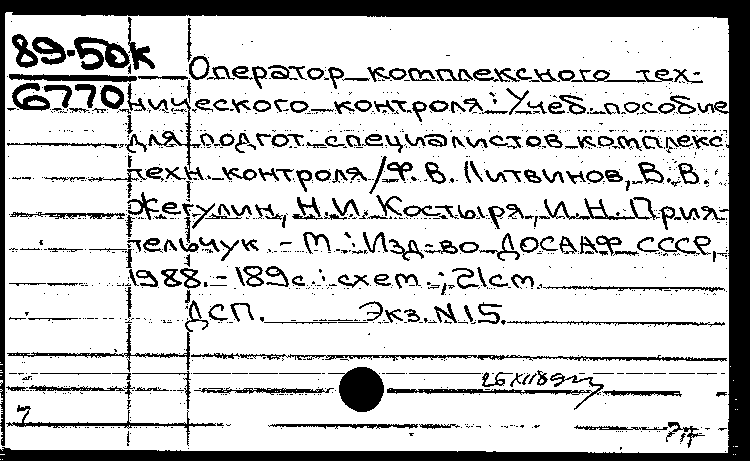 89-50к
6770
Оператор комплексного тех-
нического контроля: Учеб. пособие
для подгот. специалистов комплекс.
техн. контроля/Ф. В. Литвинов, В. В.
Жегулин, Н. И. Костыря, И. Н. Прия-
тельчук. - М.: Изд-во ДОСААФ СССР,
1988. - 189с.: схем.; 21см.
ДСП. Экз. N15.
26 XII 89г
7